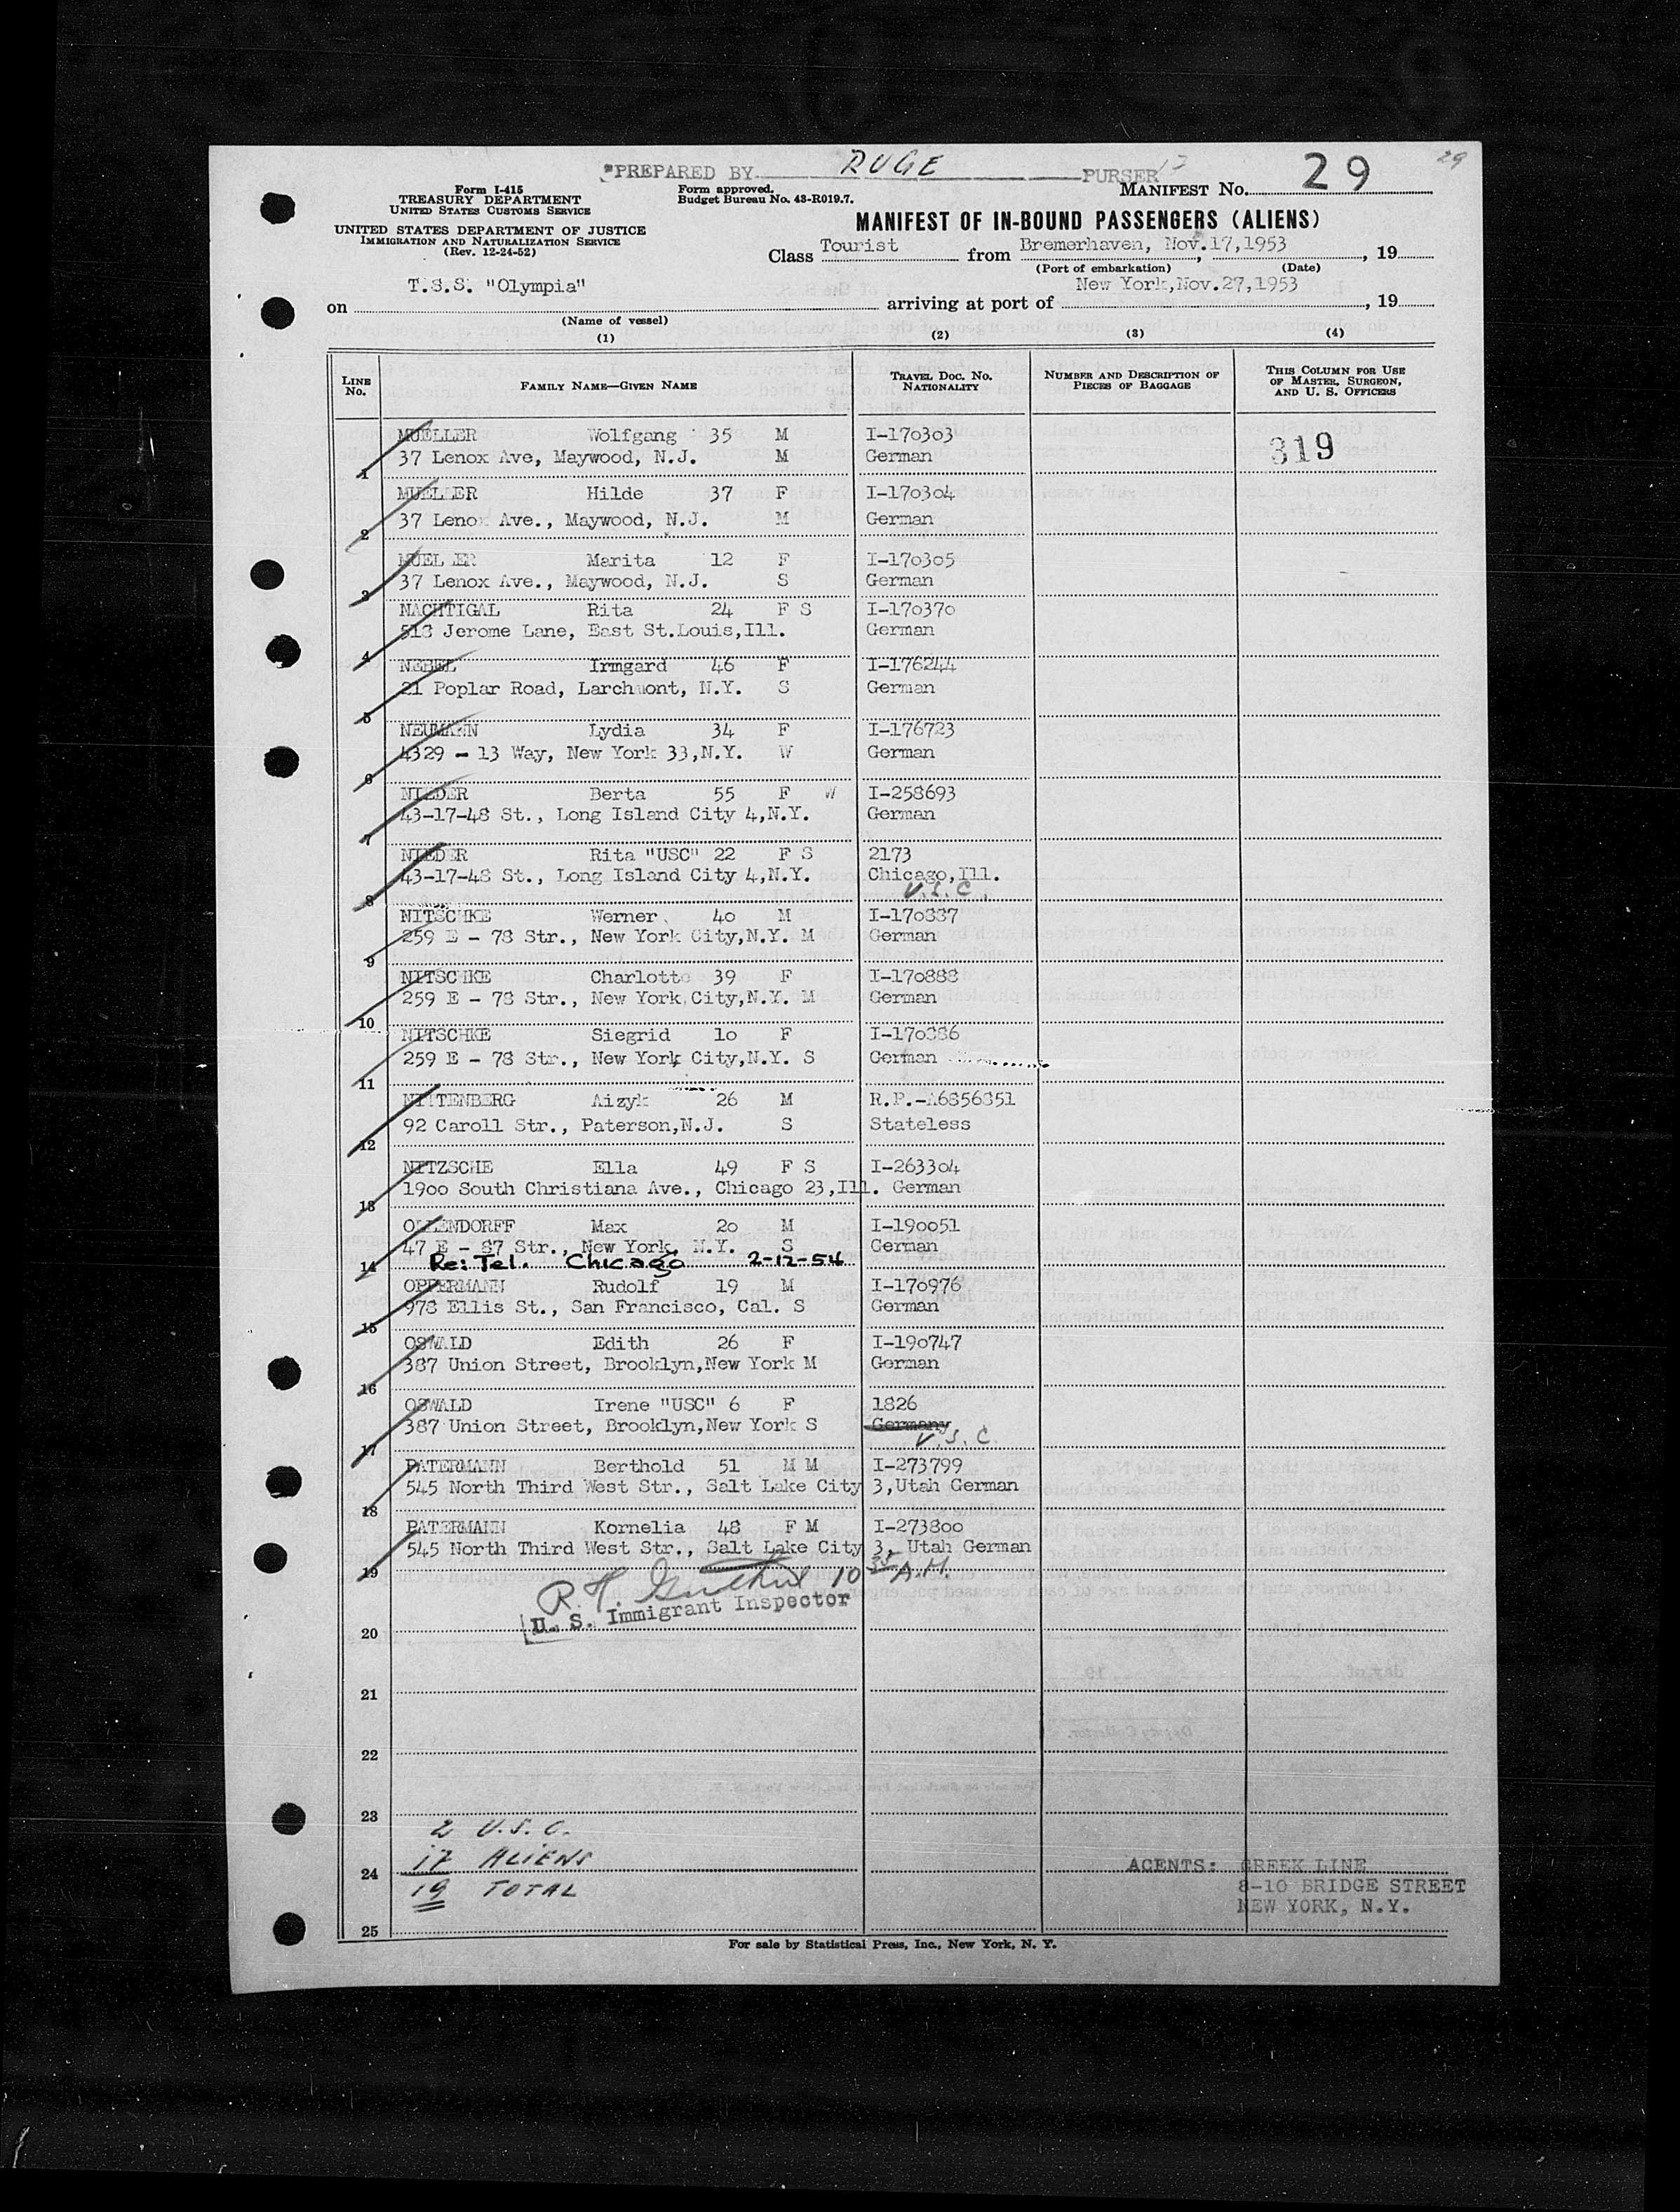 "PREPARED BY RUGE PURSER 17
29
Form I-415
TREASURY DEPARTMENT
UNITED STATES CUSTOMS SERVICE
UNITED STATES DEPARTMENT OF JUSTICE
IMMIGRATION AND NATURALIZATION SERVICE
(Rev. 12-24-52)
Form approved.
Budget Bureau No. 43-R019.7.
MANIFEST NO. 29
MANIFEST OF IN-BOUND PASSENGERS (ALIENS)
Class Tourist from Bremerhaven, Nov.17,1953, 19
(Port of embarkation) (Date)
on T.S.S. "Olympia" arriving at port of New York,Nov.27,1953, 19
(Name of vessel)
(1) (2) (3) (4)
LINE NO. FAMILY NAME—GIVEN NAME TRAVEL DOC. NO. NATIONALITY NUMBER AND DESCRIPTION OF PIECES OF BAGGAGE THIS COLUMN FOR USE OF MASTER, SURGEON, AND U. S. OFFICERS
MUELLER Wolfgang 35 M I-170303 319
37 Lenox Ave, Maywood, N.J. M German
1
MUELLER Hilde 37 F I-170304
37 Lenox Ave., Maywood, N.J. M German
2
MUEL ER Marita 12 F I-170305
37 Lenox Ave., Maywood, N.J. S German
3
NACHTIGAL Rita 24 F S I-170370
518 Jerome Lane, East St.Louis,Ill. German
4
NEBEL Irmgard 46 F I-176244
21 Poplar Road, Larchmont, N.Y. S German
5
NEUMANN Lydia 34 F I-176723
4329 - 13 Way, New York 33,N.Y. W German
6
NIEDER Berta 55 F W I-258693
43-17-48 St., Long Island City 4,N.Y. German
7
NIEDER Rita "USC" 22 F S 2173
43-17-48 St., Long Island City 4,N.Y. Chicago,Ill.
8 U.S.C.
NITSCHKE Werner 40 M I-170887
259 E - 78 Str., New York City,N.Y. M German
9
NITSCHKE Charlotte 39 F I-170888
259 E - 78 Str., New York City,N.Y. M German
10
NITSCHKE Siegrid 10 F I-170886
259 E - 78 Str., New York City,N.Y. S German
11
NITTENBERG Aizyk 26 M R.P.-A6856851
92 Caroll Str., Paterson,N.J. S Stateless
12
NITZSCHE Ella 49 F S I-263304
1900 South Christiana Ave., Chicago 23,Ill. German
13
OLLENDORFF Max 20 M I-190051
47 E - 87 Str., New York, N.Y. S German
14 Re: Tel. Chicago 2-12-54
OPPERMANN Rudolf 19 M I-170976
978 Ellis St., San Francisco, Cal. S German
15
OSWALD Edith 26 F I-190747
387 Union Street, Brooklyn,New York M German
16
OSWALD Irene "USC" 6 F 1826
387 Union Street, Brooklyn,New York S Germany
17 U.S.C.
PATERMANN Berthold 51 M M I-273799
545 North Third West Str., Salt Lake City 3,Utah German
18
PATERMANN Kornelia 48 F M I-273800
545 North Third West Str., Salt Lake City 3, Utah German
19
R. H. 10 35 A.M.
U. S. Immigrant Inspector
20
21
22
23
2 U.S.C.
17 ALIENS
24
19 TOTAL
AGENTS: GREEK LINE
8-10 BRIDGE STREET
NEW YORK, N.Y.
25
For sale by Statistical Press, Inc., New York, N. Y.